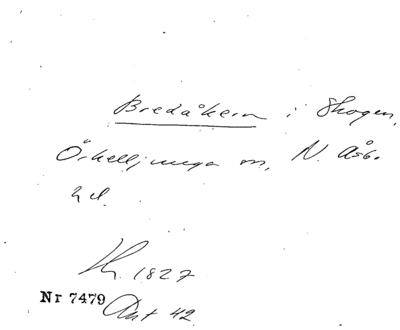 Bredåkern i Skogen,
Örkelljunga sn, N. Åsb.
hd.
1827
Nr 7479 Ant 42